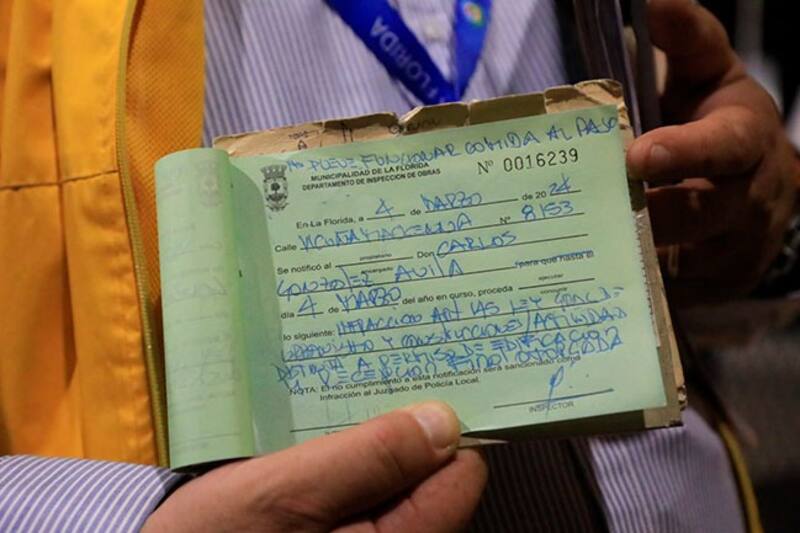 FLORIDA
No PUEDE FUNCIONAR COMIDA AL PASO
MUNICIPALIDAD DE LA FLORIDA
DEPARTAMENTO DE INSPECCION DE OBRAS
Nº 0016239
En La Florida, a 4 de MARZO de 2024
Calle VICUÑA MACKENNA Nº 8153
propietario
Se notificó al Don CARLOS
encargado
GONZALEZ AVILA para que hasta el
ejecutar
día 4 de MARZO del año en curso, proceda
concurrir
lo siguiente: INFRACCION ART LEY GRAL DE
URBANISMO Y CONSTRUCCIONES / ACTIVIDAD
DISTINTA A PERMISO DE EDIFICACION
Y RECEPCION
NOTA: El no cumplimiento a esta notificación será sancionado como
Infracción al Juzgado de Policía Local.
INSPECTOR